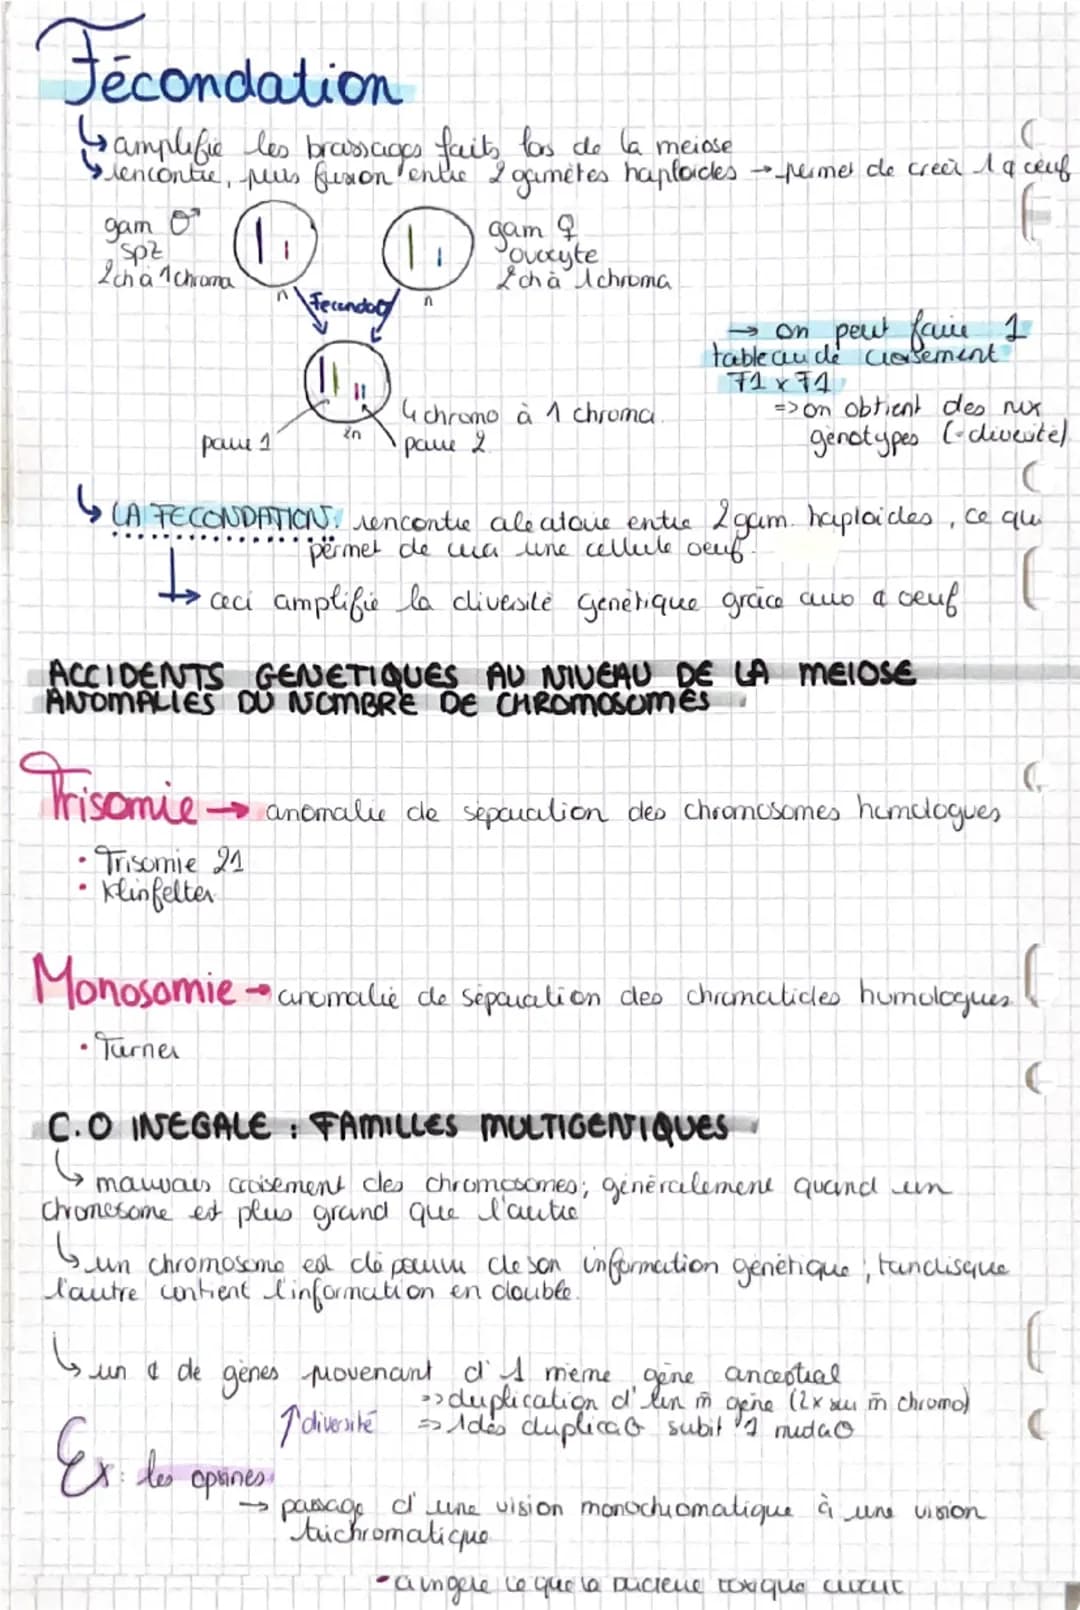 Fécondation
↳ amplifie les brassages faits lors de la meiose
↳ rencontre, puis fusion entre 2 gamètes haploides → permet de creer 1 ¢ œuf
gam ♂
spz
2ch à 1 chroma
n
gam ♀
ovocyte
2 ch à 1 chroma
n
Fecondaθ
4 chromo à 1 chroma.
paire 1
2n
paire 2
→ on peut faire 1
tableau de croisement
F1 x F1
=> on obtient des nvx
génotypes (= diversité)
↳ LA FECONDATION: rencontre aleatoire entre 2 gam. haploides, ce qui
permet de créer une cellule oeuf.
↳ ceci amplifie la diversité génétique grâce aux ¢ oeuf
ACCIDENTS GENETIQUES AU NIVEAU DE LA MEIOSE
ANOMALIES DU NOMBRE DE CHROMOSOMES
Trisomie → anomalie de séparation des chromosomes homologues
• Trisomie 21
• Klinfelter
Monosomie → anomalie de séparation des chromatides homologues
• Turner
C.O INEGALE : FAMILLES MULTIGENIQUES
↳ mauvais croisement des chromosomes; généralement quand un
chromosome est plus grand que l'autre
↳ un chromosome est dépourvu de son information génétique, tandisque
l'autre contient l'information en double.
↳ un ¢ de gènes provenant d'1 même gène ancestral
=> duplication d'un m̄ gène (2x sur m̄ chromo)
↑ diversité => 1 des duplicaθ subit 1 mutaθ
Ex: les opsines
→ passage d'une vision monochromatique à une vision
trichromatique